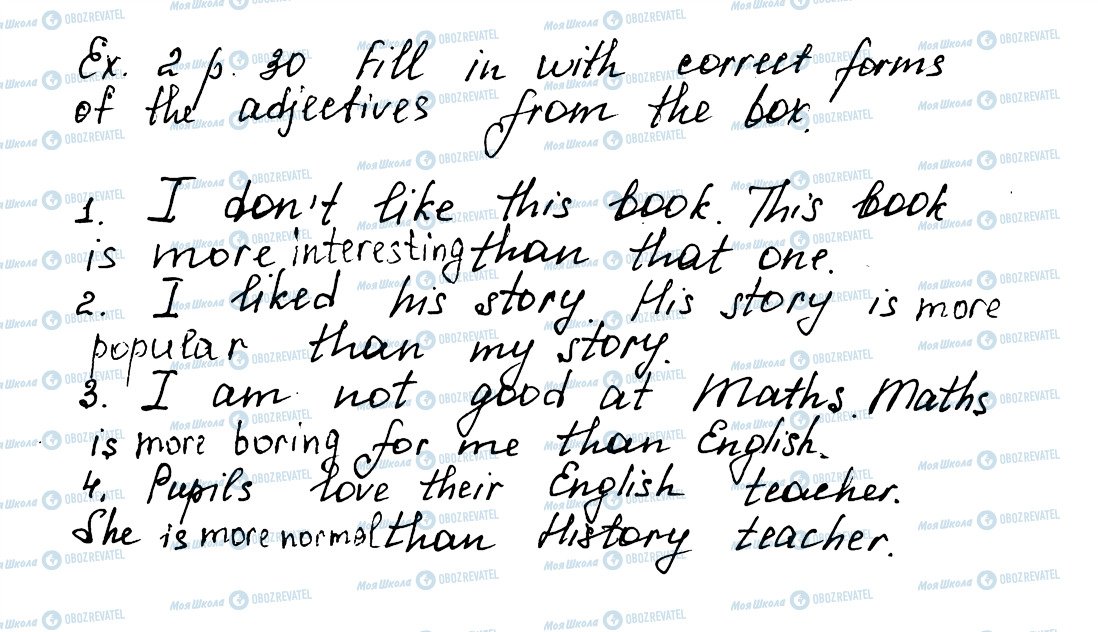 Ex. 2 p. 30 Fill in with correct forms
of the adjectives from the box.
1. I don't like this book. This book
is more interesting than that one.
2. I liked his story. His story is more
popular than my story.
3. I am not good at Maths. Maths
is more boring for me than English.
4. Pupils love their English teacher.
She is more normal than History teacher.